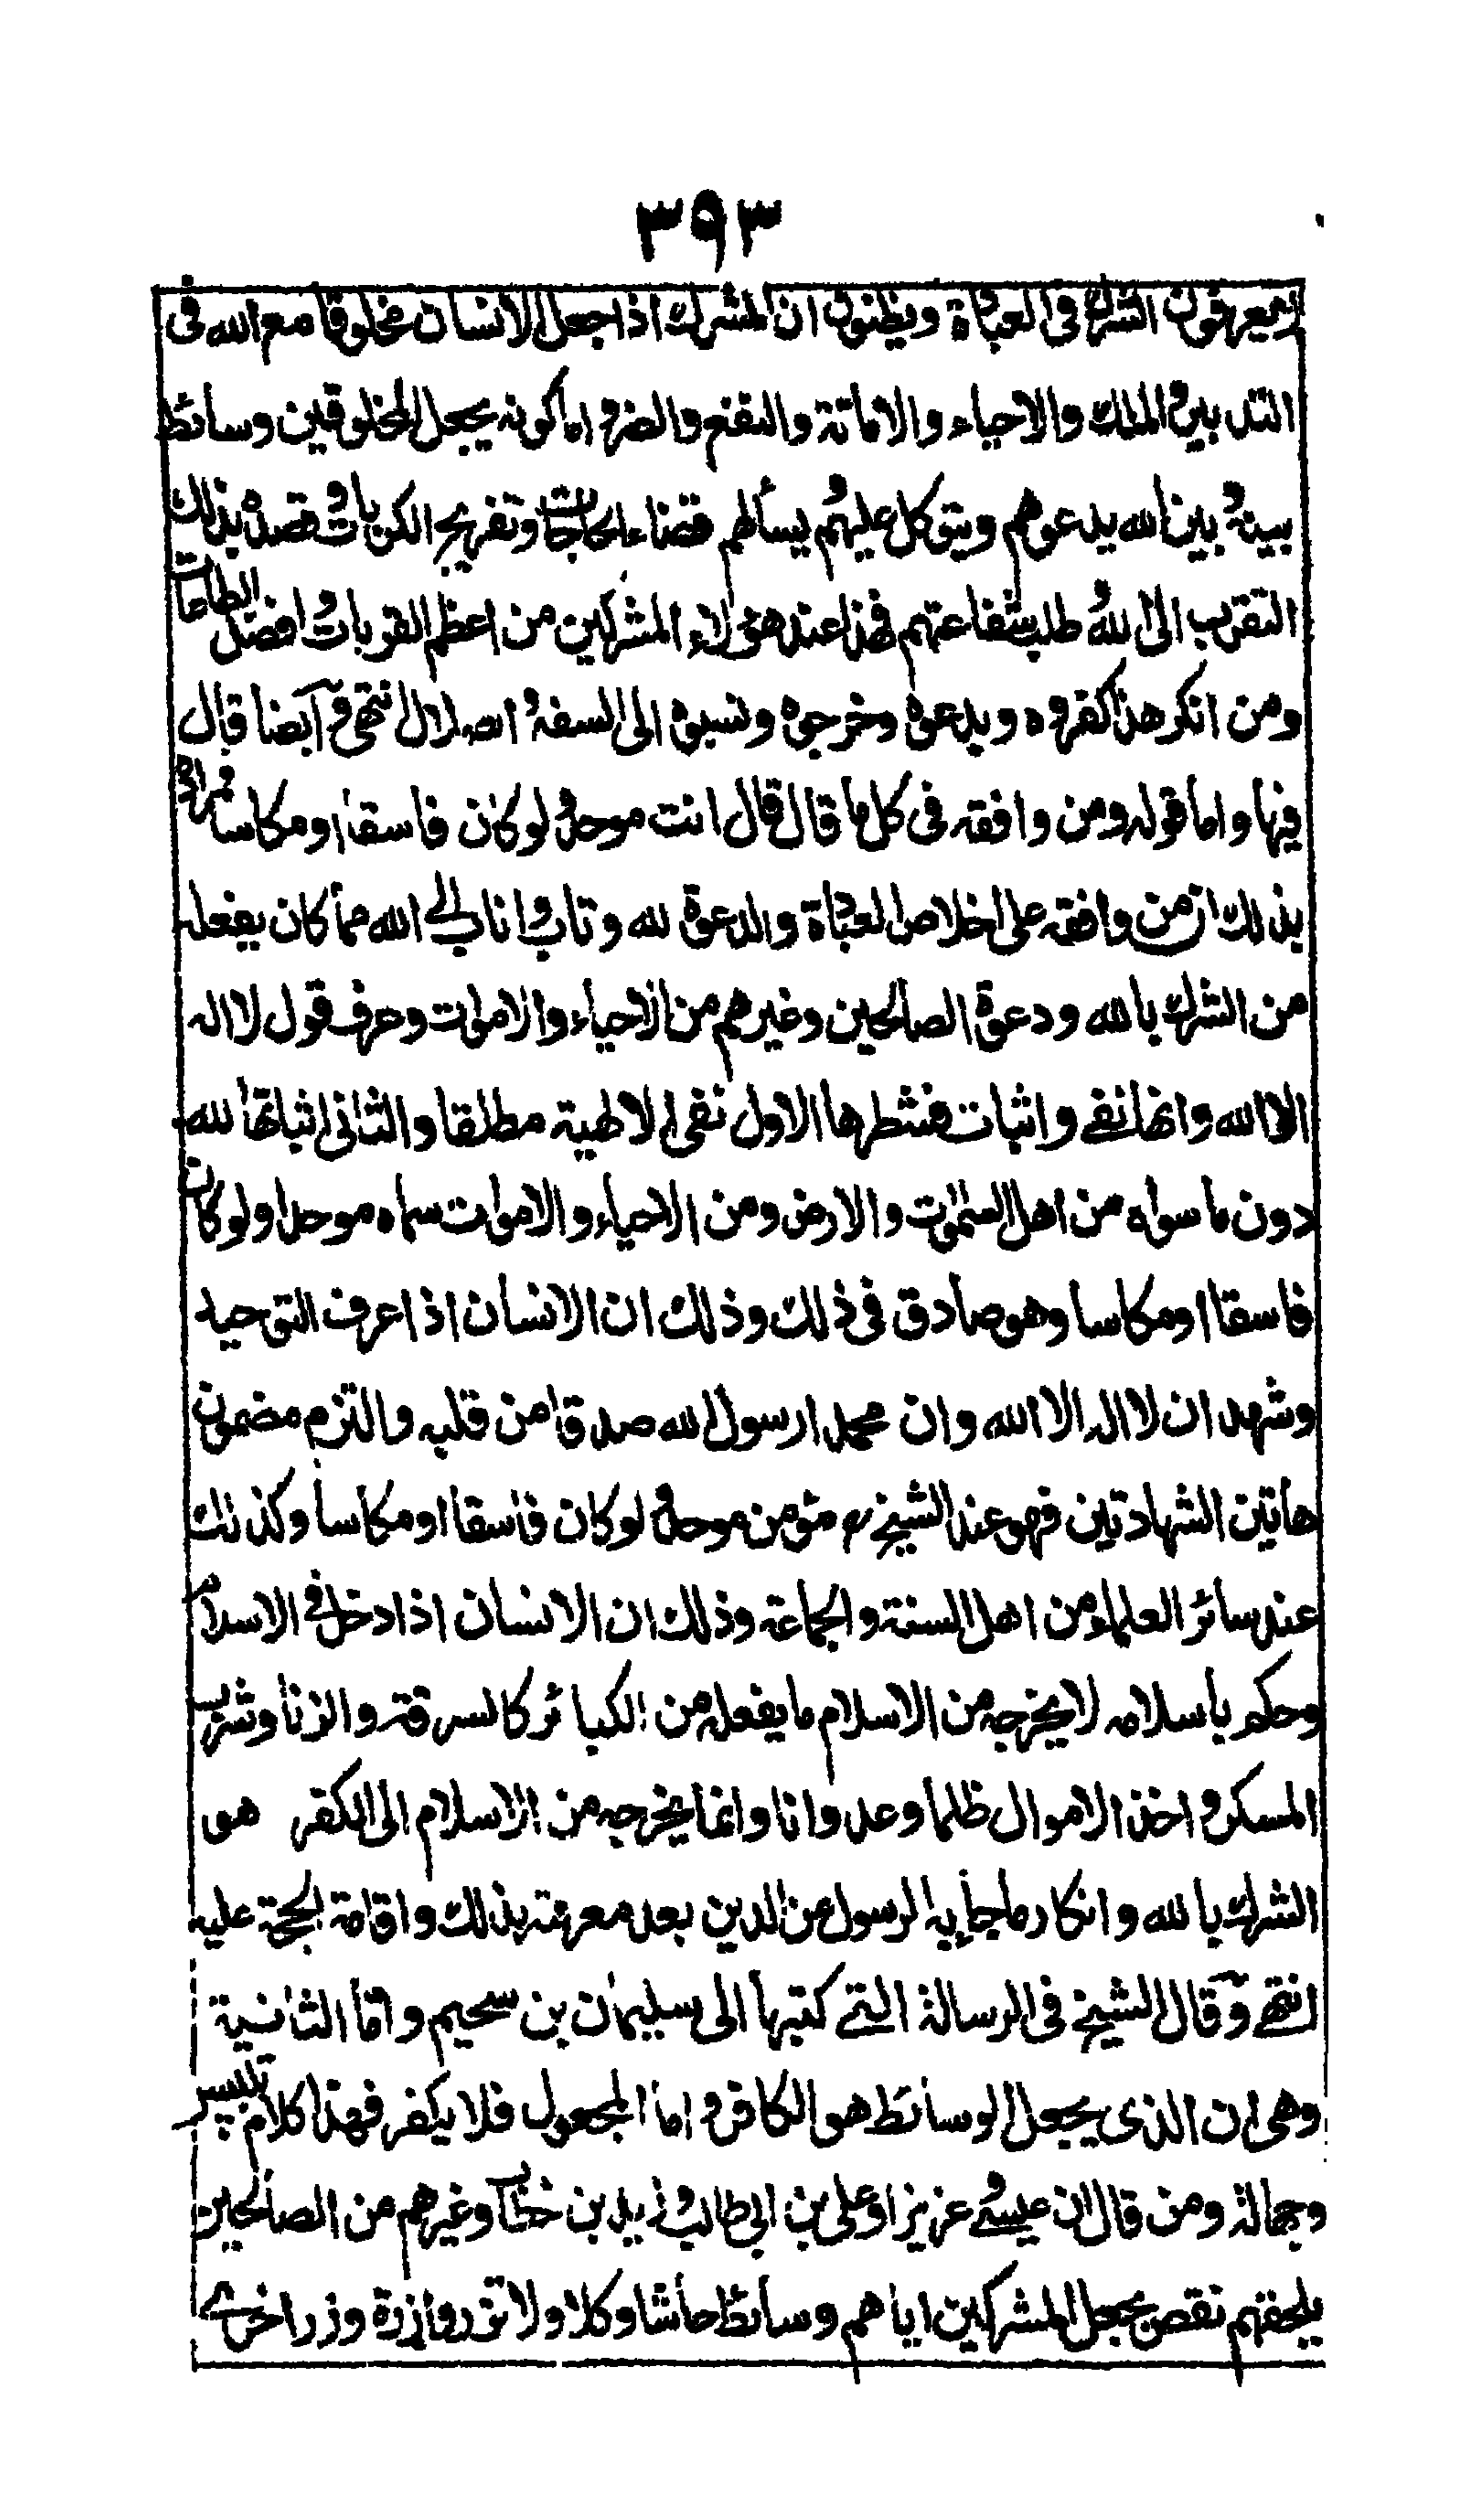 ٣٩٣
يعرفون الشرك فى العبادة ويظنون ان المشرك اذا جعل الانسان مخلوقا مع الله فى
التدبير والملك والاحياء والاماتة والنفع والضر واما كونه يجعل المخلوقين وسائط
بينه وبين الله يدعوهم ويتوكل عليهم يسألهم قضاء الحاجات وتفريج الكربات وقصده بذلك
التقرب الى الله وطلب شفاعتهم فهذا عند هؤلاء المشركين من اعظم القربات وافضل الطاعات
ومن انكر هذا كفروه وبدعوه وخرجوه ونسبوه الى السفه والضلال انتهى وآيضا قال
فيها واما قوله ومن وافقه فى كل ما قال قال انت موحد ولو كان فاسقا او مكاسا فمراده
بذلك ان من وافقه على اخلاص العبادة والدعوة لله وتاب واناب الى الله مما كان يفعله
من الشرك بالله ودعوة الصالحين وغيرهم من الاحياء والاموات وعرف قول لا اله
الا الله وانها نفى واثبات فشطرها الاول نفى الالهية مطلقا والثانى اثباتها لله
دون ما سواه من اهل السموت والارض ومن الاحياء والاموات سماه موحدا ولو كان
فاسقا او مكاسا وهو صادق فى ذلك وذلك ان الانسان اذا عرف التوحيد
وشهد ان لا اله الا الله وان محمدا رسول لله صدقا من قلبه والتزم مضمون
هاتين الشهادتين فهو عند الشيخ رح مؤمن موحد ولو كان فاسقا او مكاسا وكذلك
عند سائر العلماء من اهل السنة والجماعة وذلك ان الانسان اذا دخل فى الاسلام
وحكم باسلامه لا يخرجه من الاسلام ما يفعله من الكبائر كالسرقة والزنا وشرب
المسكر واخذ الاموال ظلما وعدوانا وانما يخرجه من الاسلام الى الكفر هو
الشرك بالله وانكار ما جاء به الرسول من الدين بعد معرفته بذلك واقامة الحجة عليه
انتهى وقال الشيخ فى الرسالة التى كتبها الى سليمان بن سحيم واما الثانية
وهى ان الذى يجعل الوسائط هو الكافر واما المجعول فلا يكفر فهذا كلام تلبيس
وجهالة ومن قال ان عيسى وعزيرا وعلى بن ابى طالب وزيد بن خطاب وغيرهم من الصالحين
يلحقهم نقص بجعل المشركين اياهم وسائط حاشا وكلا ولا تزر وازرة وزر اخرى